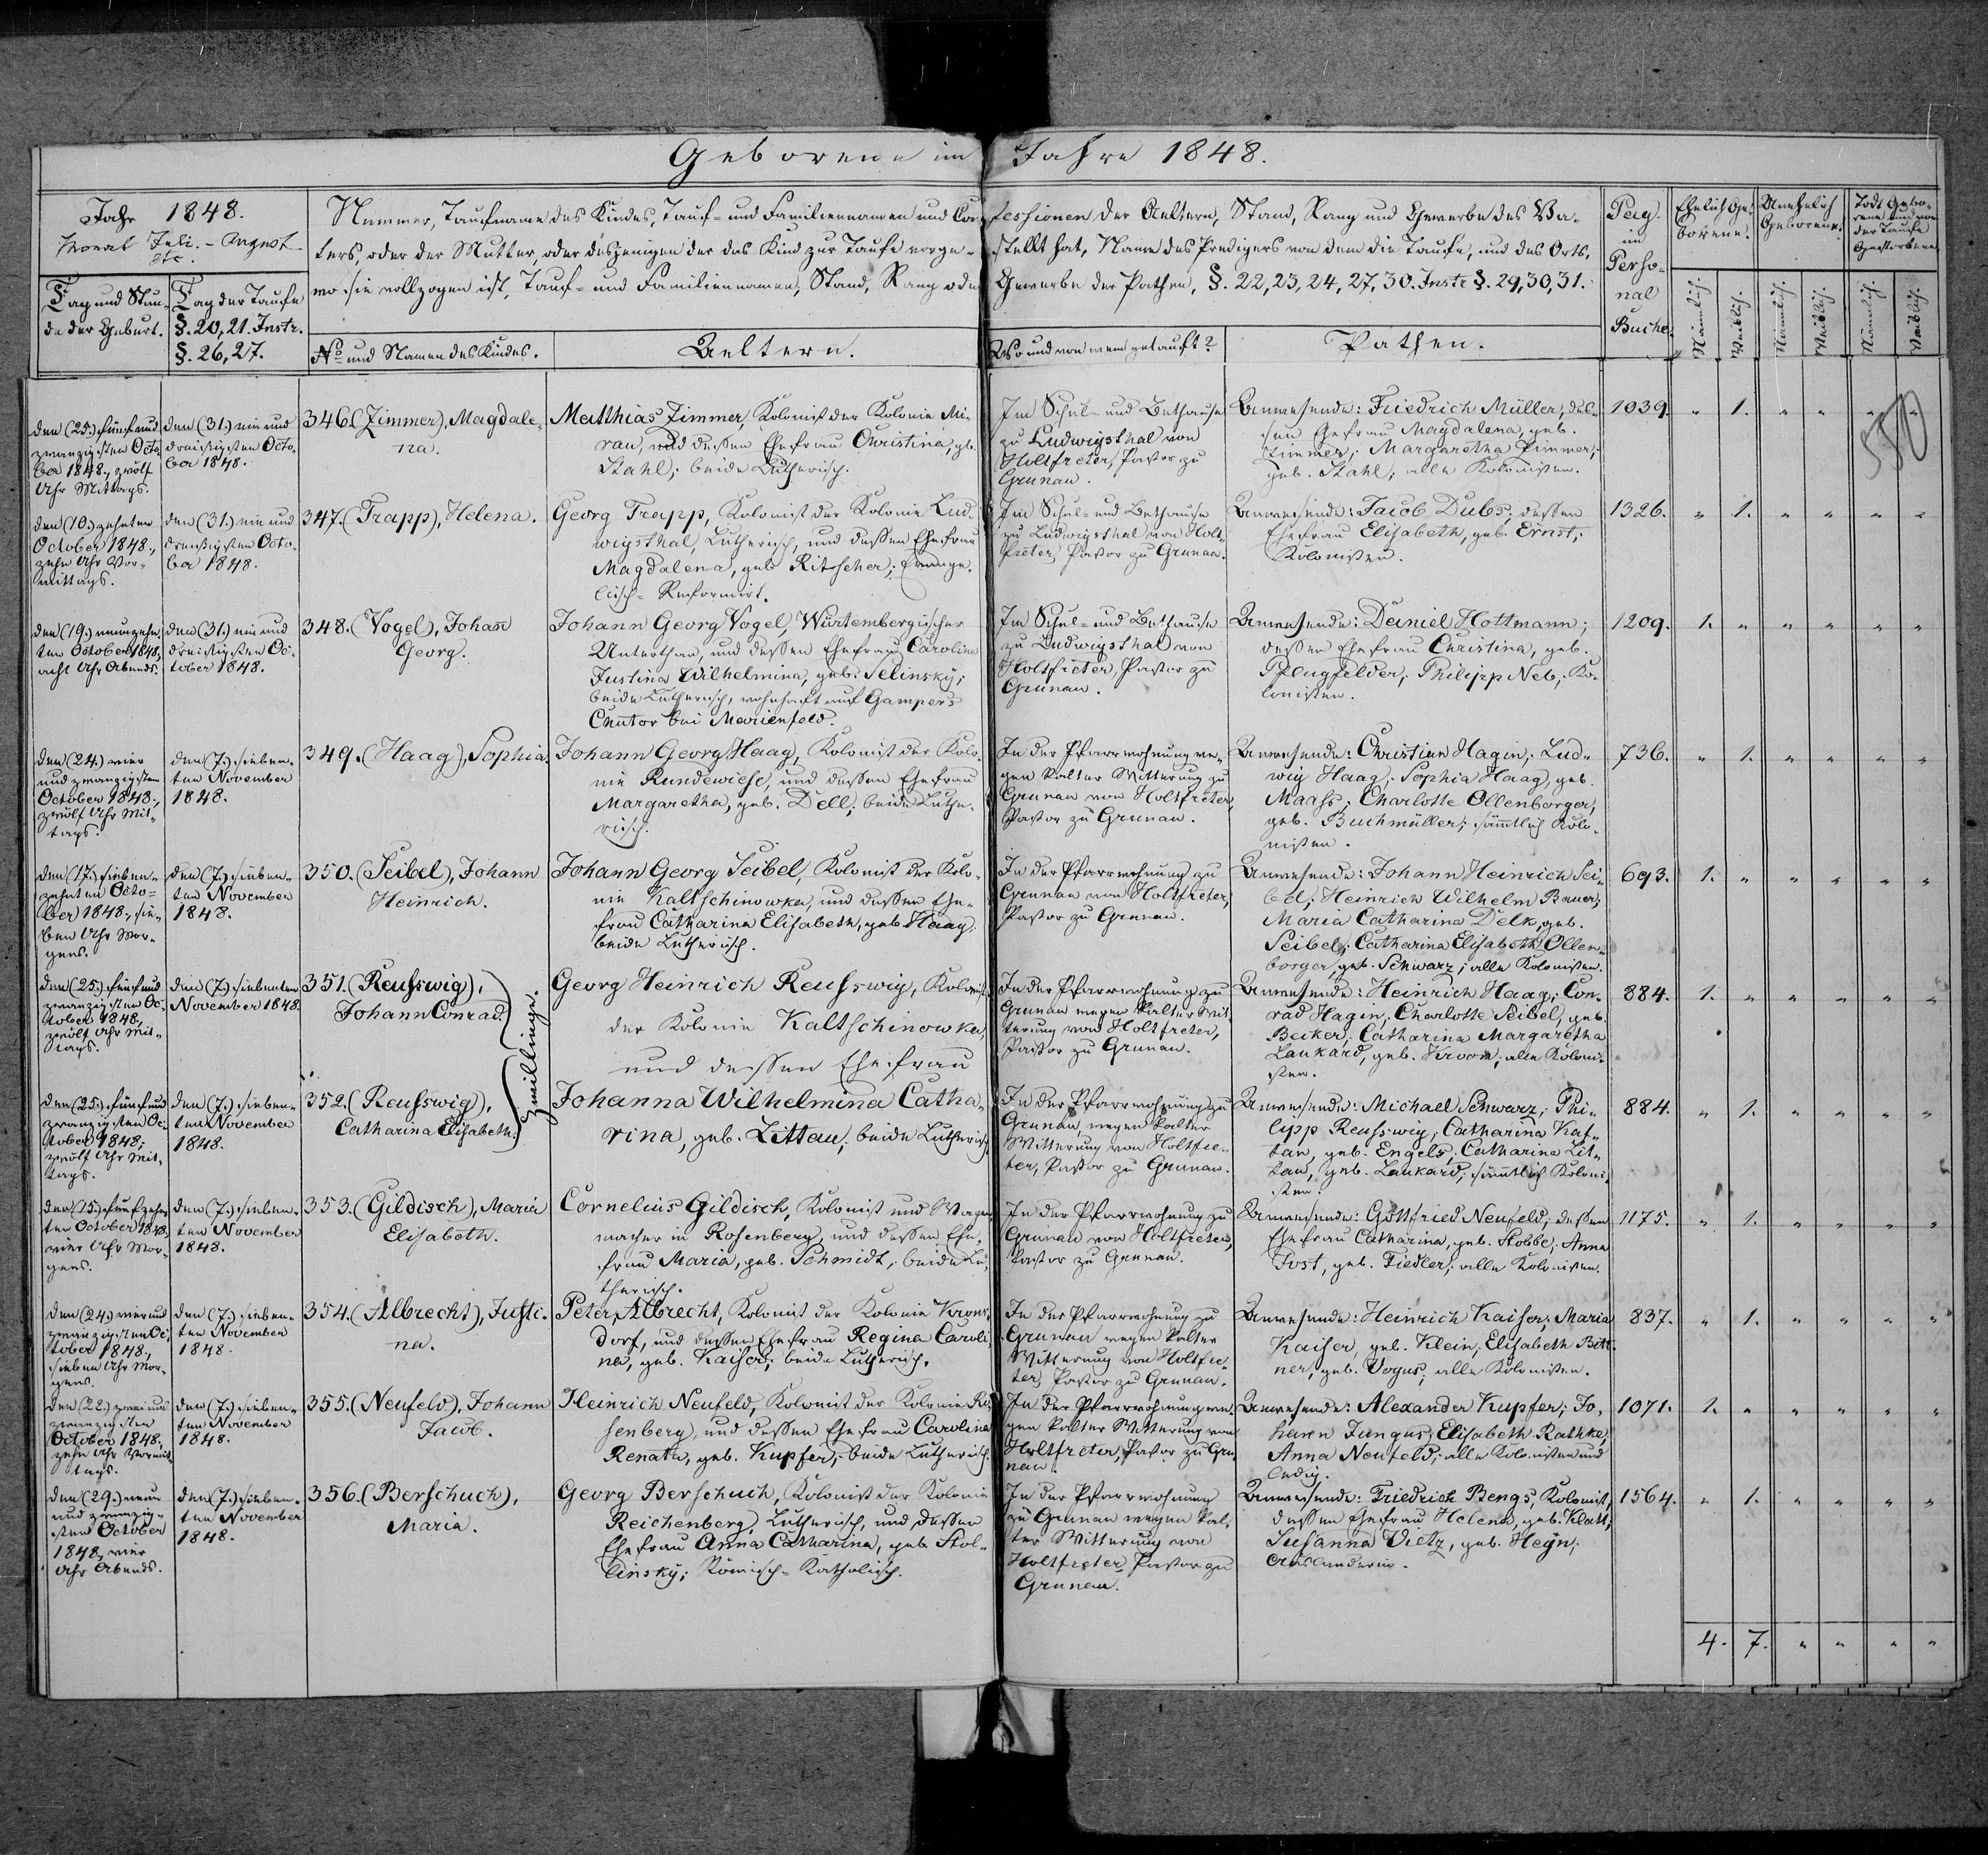 Geborene im Jahre 1848.
Jahr 1848.
Monat Juli. - August
etc.
Tag und Stun-
de der Geburt.
Tag der Taufe
§. 20, 21. Instr.
§. 26, 27.
Nummer, Taufname des Kindes, Tauf- und Familiennamen und Con-
fessionen der Aeltern, Stand, Rang und Gewerbe des Va-
ters, oder der Mutter, oder desjenigen der das Kind zur Taufe vorge-
stellt hat, Name des Predigers von dem die Taufe, und des Orts,
wo sie vollzogen ist, Tauf- und Familiennamen, Stand, Rang oder
Gewerbe der Pathen, §. 22, 23, 24, 27, 30. Instr §. 29, 30, 31.
No und Namen des Kindes.
Aeltern.
Wo und von wem getauft?
Pathen.
Pag.
im
Perso-
nal
Buche.
Ehelich Ge-
borene.
Unehelich
Geborene.
Todt Gebo-
rene und vor
der Taufe
Gestorbene.
Männlich.
Weiblich.
Männlich.
Weiblich.
Männlich.
Weiblich.
550
den (25.) fünf und
zwanzigsten Octo-
ber 1848., zwölf
Uhr Mittags.
den (31.) ein und
dreißigsten Octo-
ber 1848.
346. (Zimmer), Magdale-
na.
Matthias Zimmer, Kolonist der Kolonie Mi-
rau, und dessen Ehefrau Christina, gb.
Stahl; beide Lutherisch.
Im Schul- und Bethause
zu Ludwigsthal von
Holtfreter, Pastor zu
Grunau.
Anwesende: Friedrich Müller, des-
sen Ehefrau Magdalena, geb.
Zimmer; Margaretha Zimmer,
geb. Stahl; alle Kolonisten.
1039. " 1. " " " "
den (10.) zehnten
October 1848.,
zehn Uhr Vor-
mittags.
den (31.) ein und
dreißigsten Octo-
ber 1848.
347. (Trapp), Helena.
Georg Trapp, Kolonist der Kolonie Lud-
wigsthal, Lutherisch, und dessen Ehefrau
Magdalena, geb Ritscher; Evange-
lisch-Reformirt.
Im Schul- und Bethause
zu Ludwigsthal von Holt-
freter, Pastor zu Grunau.
Anwesende: Jacob Dubs, dessen
Ehefrau Elisabeth, geb. Ernst;
Kolonisten.
1326. " 1. " " " "
den (19.) neunzehn-
ten October 1848.,
acht Uhr Abends.
den (31.) ein und
dreißigsten Oc-
tober 1848.
348. (Vogel), Johan̅
Georg.
Johann Georg Vogel, Würtembergischer
Unterthan, und dessen Ehefrau Carolina
Justina Wilhelmina, geb. Selinsky;
beide Lutherisch, wohnhaft auf Gampers
Chutor bei Marienfeld.
Im Schul- und Bethause
zu Ludwigsthal von
Holtfreter, Pastor zu
Grunau.
Anwesende: Daniel Hottmann;
dessen Ehefrau Christina, geb.
Pflugfelder; Philipp Neb; Ko-
lonisten.
1209. 1. " " " " "
den (24.) vier
und zwanzigsten
October 1848.,
zwölf Uhr Mit-
tags.
den (7.) sieben-
ten November
1848.
349. (Haag), Sophia.
Johann Georg Haag, Kolonist der Kolo-
nie Rundewiese, und dessen Ehefrau
Margaretha, geb. Dell; beide Luthe-
risch.
In der Pfarrwohnung we-
gen kalter Witterung zu
Grunau von Holtfreter,
Pastor zu Grunau.
Anwesende: Christian Hagin; Lud-
wig Haag; Sophia Haag, geb.
Maass; Charlotte Ollenborger,
geb. Buchmüller; sämtlich Kolo-
nisten.
736. " 1. " " " "
den (17.) sieben-
zehnten Octo-
ber 1848., sie-
ben Uhr Mor-
gens.
den (7.) sieben-
ten November
1848.
350. (Seibel), Johann
Heinrich.
Johann Georg Seibel, Kolonist der Kolo-
nie Kaltschinowka, und dessen Ehe-
frau Catharina Elisabeth, geb Haag;
beide Lutherisch.
In der Pfarrwohnung zu
Grunau von Holtfreter,
Pastor zu Grunau.
Anwesende: Johann Heinrich Sei-
bel; Heinrich Wilhelm Bauer;
Maria Catharina Delk, geb.
Seibel; Catharina Elisabeth Ollen-
borger, geb. Schwarz; alle Kolonisten.
693. 1. " " " " "
den (25.) fünf und
zwanzigsten Oc-
tober 1848.,
zwölf Uhr Mit-
tags.
den (7.) siebenten
November 1848.
351. (Reusswig),
Johann Conrad.
Zwillinge.
Georg Heinrich Reusswig, Kolonist
der Kolonie Kaltschinowka,
und dessen Ehefrau
In der Pfarrwohnung zu
Grunau wegen kalter Wit-
terung von Holtfreter,
Pastor zu Grunau.
Anwesende: Heinrich Haag; Con-
rad Hagin; Charlotte Seibel, geb.
Becker; Catharina Margaretha
Laukard, geb. Kroom; alle Koloni-
sten.
884. 1. " " " " "
den (25.) fünf und
zwanzigsten Oc-
tober 1848;
zwölf Uhr Mit-
tags.
den (7.) sieben-
ten November
1848.
352. (Reusswig),
Catharina Elisabeth.
Johanna Wilhelmina Catha-
rina, geb. Littau; beide Lutherisch.
In der Pfarrwohnung zu
Grunau wegen kalter
Witterung von Holtfre-
ter, Pastor zu Grunau.
Anwesende: Michael Schwarz; Phi-
lipp Reusswig; Catharina Kaf-
tan, geb. Engels; Catharina Lit-
tau, geb. Laukard; sämtlich Koloni-
sten.
884. " 1. " " " "
den (15.) fünfzehn-
ten October 1848,
vier Uhr Mor-
gens.
den (7.) sieben-
ten November
1848.
353. (Gildisch), Maria
Elisabeth.
Cornelius Gildisch, Kolonist und Wagen-
macher in Rosenberg, und dessen Ehe-
frau Maria, geb. Schmidt; beide Lu-
therisch.
In der Pfarrwohnung zu
Grunau von Holtfreter,
Pastor zu Grunau.
Anwesende: Gottfried Neufeld; dessen
Ehefrau Catharina, geb. Stobbe; Anna
Jost, geb. Fiedler; alle Kolonisten.
1175. " 1. " " " "
den (24.) vier und
zwanzigsten Oc-
tober 1848.,
sieben Uhr Mor-
gens.
den (7.) sieben-
ten November
1848.
354. (Albrecht), Justi-
na.
Peter Albrecht, Kolonist der Kolonie Krons-
dorf, und dessen Ehefrau Regina Caroli-
na, geb. Kaiser; beide Lutherisch.
In der Pfarrwohnung zu
Grunau wegen kalter
Witterung von Holtfre-
ter, Pastor zu Grunau.
Anwesende: Heinrich Kaiser; Maria
Kaiser, geb. Klein; Elisabeth Bitt-
ner, geb. Vogus; alle Kolonisten.
837. " 1. " " " "
den (22.) zwei und
zwanzigsten
October 1848.,
zehn Uhr Vormit-
tags.
den (7.) sieben-
ten November
1848.
355. (Neufeld), Johann
Jacob.
Heinrich Neufeld, Kolonist der Kolonie Ro-
senberg, und dessen Ehefrau Carolina
Renata, geb. Kupfer; beide Lutherisch.
In der Pfarrwohnung we-
gen kalter Witterung von
Holtfreter, Pastor zu Gru-
nau.
Anwesende: Alexander Kupfer; Jo-
hann Jungus; Elisabeth Rathke;
Anna Neufeld; alle Kolonisten und
ledig.
1071. 1. " " " " "
den (29.) neun
und zwanzig-
sten October
1848, vier
Uhr Abends.
den (7.) sieben-
ten November
1848.
356. (Berschuch),
Maria.
Georg Berschuch, Kolonist der Kolonie
Reichenberg, Lutherisch, und dessen
Ehefrau Anna Catharina, geb Stol-
linsky; Römisch-Katholisch.
In der Pfarrwohnung
zu Grunau wegen kal-
ter Witterung von
Holtfreter, Pastor zu
Grunau.
Anwesende: Friedrich Bengs, Kolonist,
dessen Ehefrau Helena, geb. Klatt;
Susanna Vietz, geb. Heyn;
Ausländerin.
1564. " 1. " " " "
4. 7. " " " "